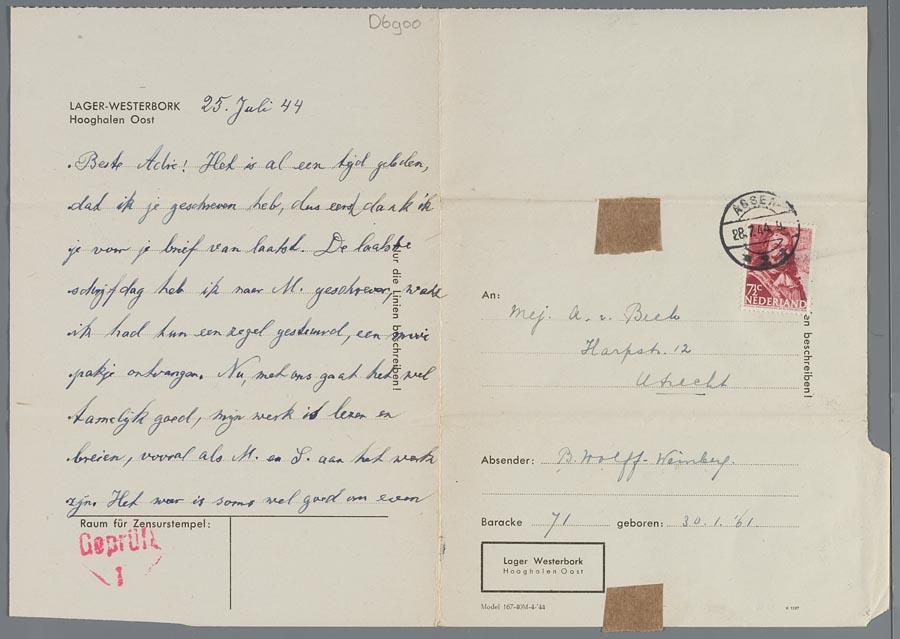 D6900
LAGER-WESTERBORK 25. Juli 44
Hooghalen Oost
Beste Adri! Het is al een tijd geleden,
dat ik je geschreven heb, dus eerst dank ik
je voor je brief van laatst. De laatste
schrijfdag heb ik naar M. geschreven, want
ik had hun een zegel gestuurd, een mooi
pakje ontvangen. Nu, met ons gaat het wel
tamelijk goed, mijn werk is lezen en
breien, vooral als M. en S. aan het werk
zijn. Het weer is soms wel goed om even
Nur die Linien beschreiben!
Raum für Zensurstempel:
Geprüft
1
ASSEN
28.7.44
7½c
NEDERLAND
An: Mej. A. v. Beek
Harpstr. 12
Utrecht
en beschreiben!
Absender: B. Wolff-Weinberg.
Baracke 71 geboren: 30.1.'61.
Lager Westerbork
Hooghalen Oost
Model 167-40M-4-'44
K 1237